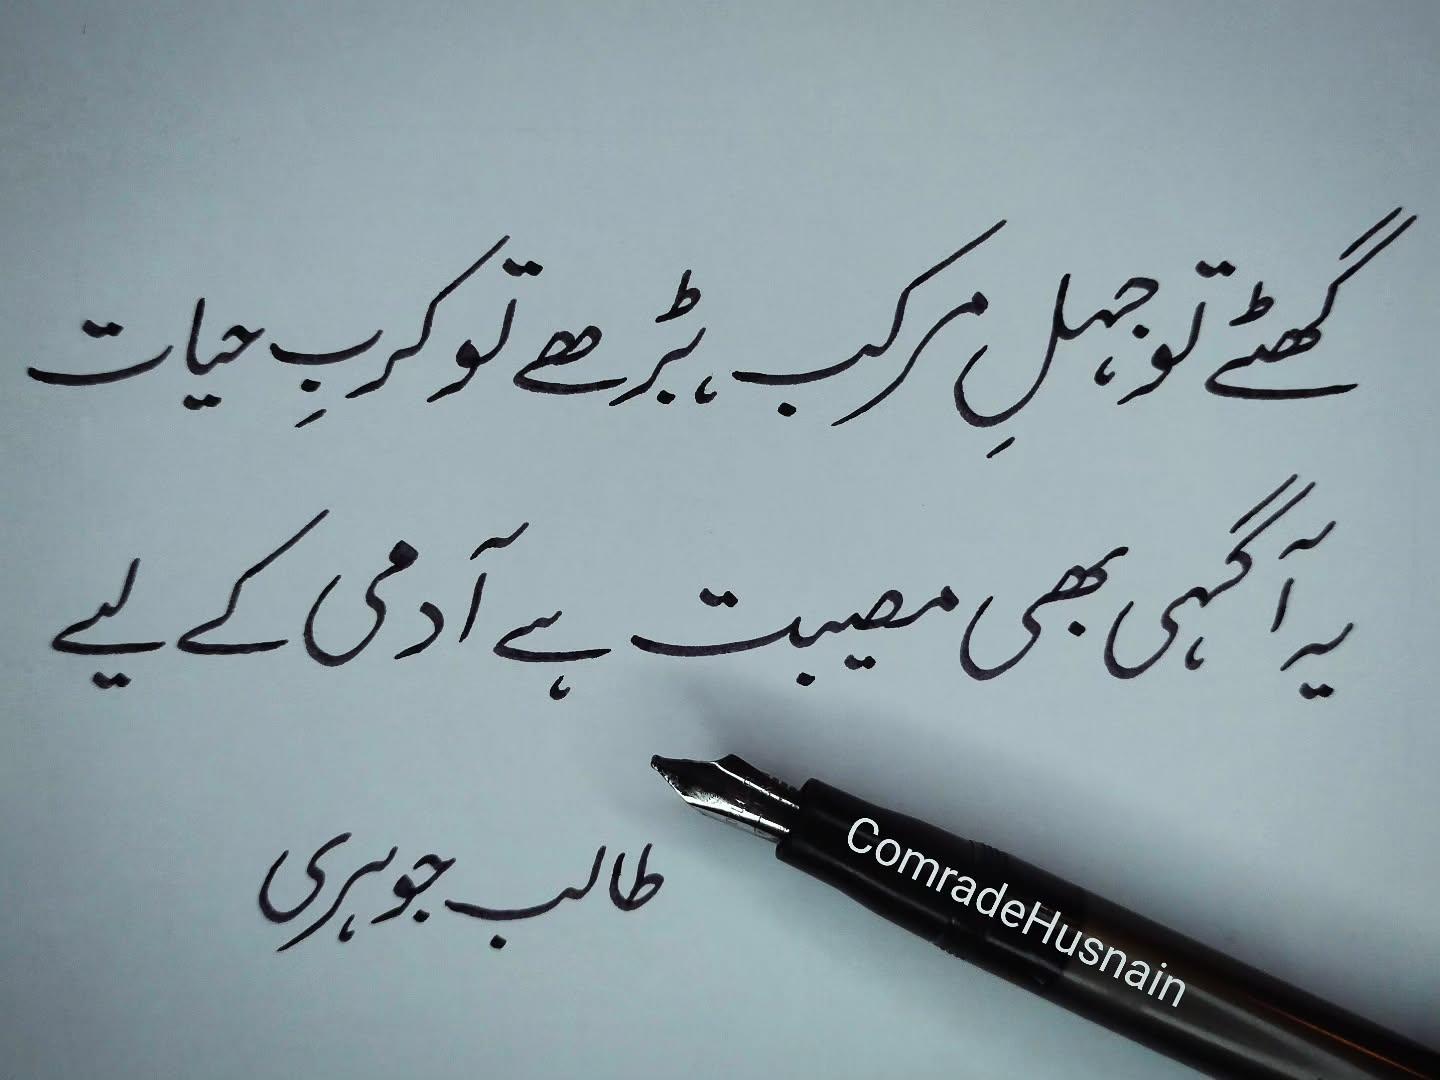 گھٹے تو جہلِ مرکب، بڑھے تو کربِ حیات
یہ آگہی بھی مصیبت ہے آدمی کے لیے
طالب جوہری
ComradeHusnain